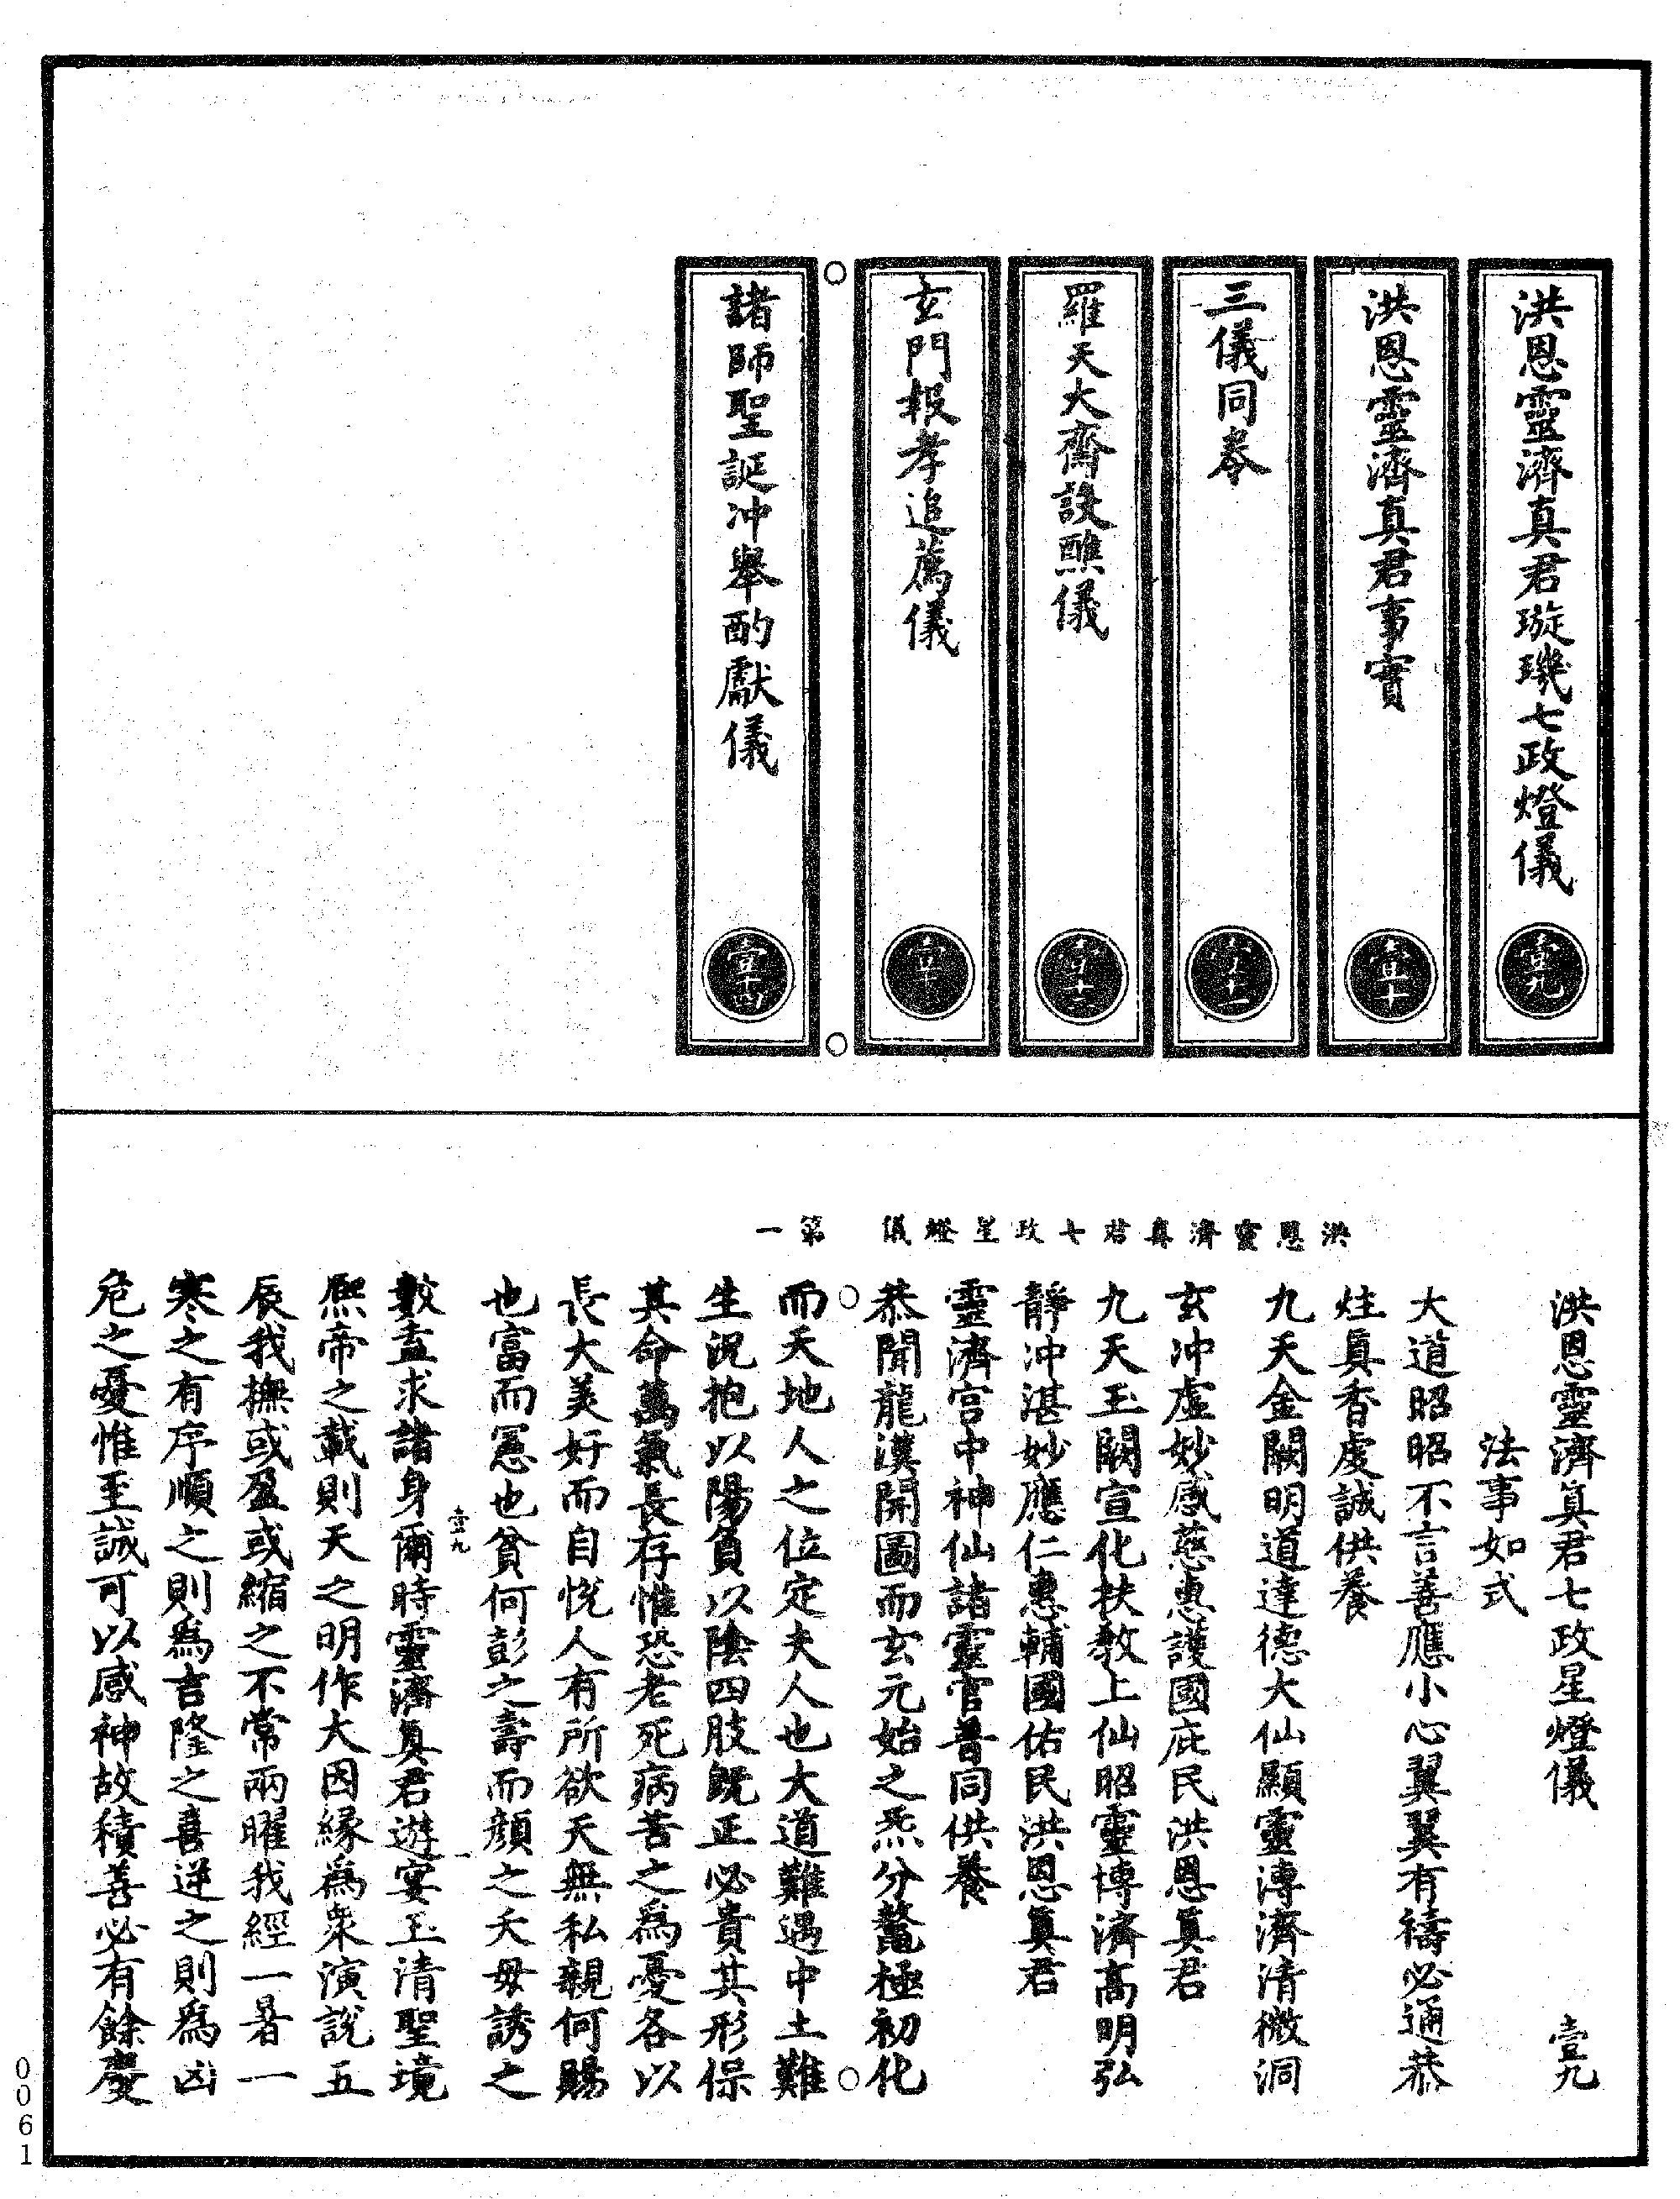 洪恩靈濟真君璇璣七政燈儀 壹九
洪恩靈濟真君事實 壹十
三儀同卷 壹十一
羅天大齋設醮儀 壹十二
玄門報孝追薦儀 壹十
諸師聖誕冲舉酌獻儀 壹十四
洪恩靈濟真君七政星燈儀 第一
洪恩靈濟真君七政星燈儀 壹九
法事如式
大道昭昭不言善應小心翼翼有禱必通恭
炷真香虔誠供養
九天金闕明道達德大仙顯靈溥濟清微洞
玄冲虛妙感慈惠護國庇民洪恩真君
九天玉闕宣化扶教上仙昭靈博濟高明弘
靜冲湛妙應仁惠輔國佑民洪恩真君
靈濟宮中神仙諸靈官普同供養
恭聞龍漢開圖而玄元始之炁分鼇極初化
而天地人之位定夫人也大道難遇中土難
生況抱以陽負以陰四肢既正必貴其形保
其命萬氣長存惟恐老死病苦之為憂各以
長大美好而自悅人有所欲天無私親何賜
也富而憲也貧何彭之壽而顏之夭毋誘之
壹九 一
數盍求諸身爾時靈濟真君遊宴玉清聖境
熈帝之載則天之明作大因緣為衆演說五
辰我撫或盈或縮之不常兩曜我經一暑一
寒之有序順之則為吉隆之喜逆之則為凶
危之憂惟至誠可以感神故積善必有餘慶
0061